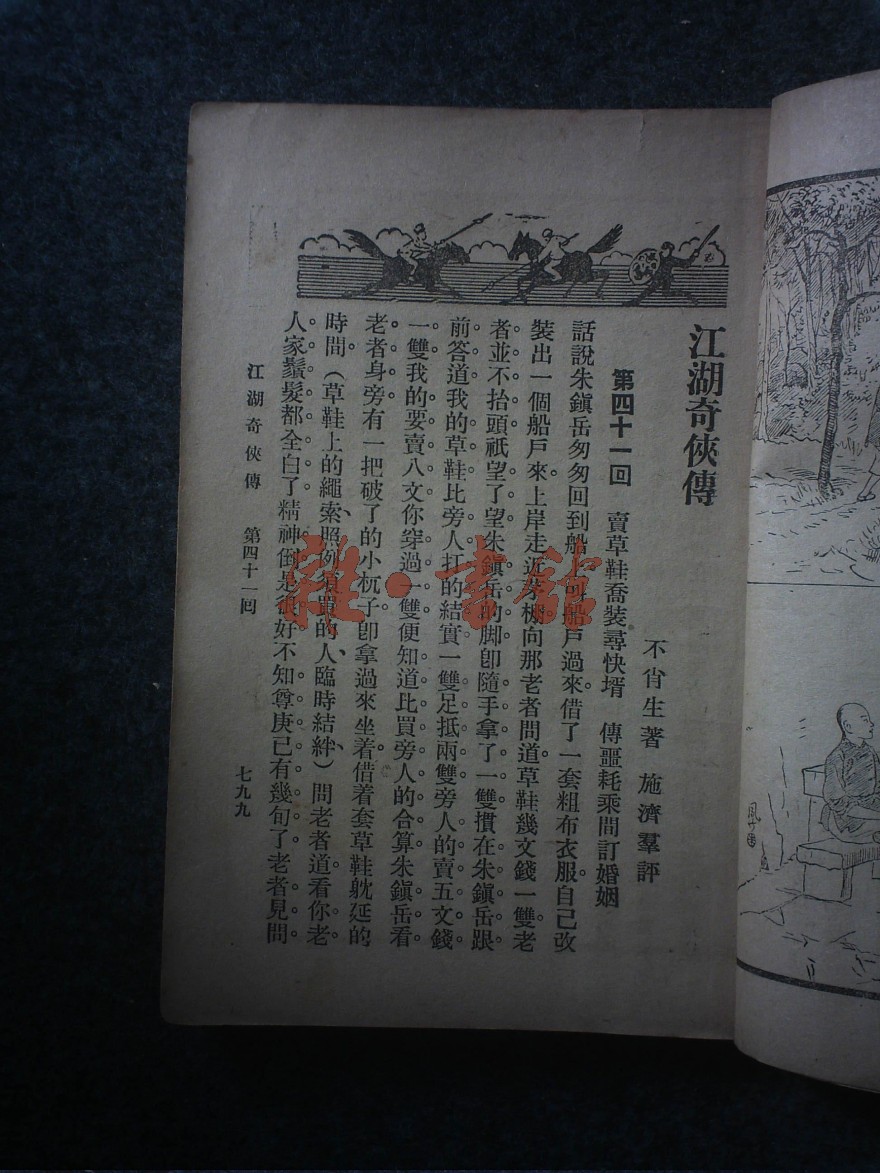 江湖奇俠傳
不肖生著　施濟羣評
第四十一回　賣草鞋喬裝尋快壻　傳噩耗乘間訂婚姻
話說朱鎭岳匆匆回到船船戶過來借了一套粗布衣服自己改
裝出一個船戶來上岸走近茶棚向那老者問道草鞋幾文錢一雙老
者並不抬頭祇望了望朱鎭岳的脚卽隨手拿了一雙摜在朱鎭岳跟
前答道我的草鞋比旁人打的結實一雙足抵兩雙旁人的賣五文錢
一雙我的要賣八文你穿過一雙便知道比買旁人的合算朱鎭岳看
老者身旁有一把破了的小杌子卽拿過來坐着借着套草鞋躭延的
時間（草鞋上的繩索照例須買的人臨時結絆）問老者道看你老
人家鬚髮都全白了精神倒是很好不知尊庚已有幾旬了老者見問
江湖奇俠傳　第四十一回
七九九
雜·書館